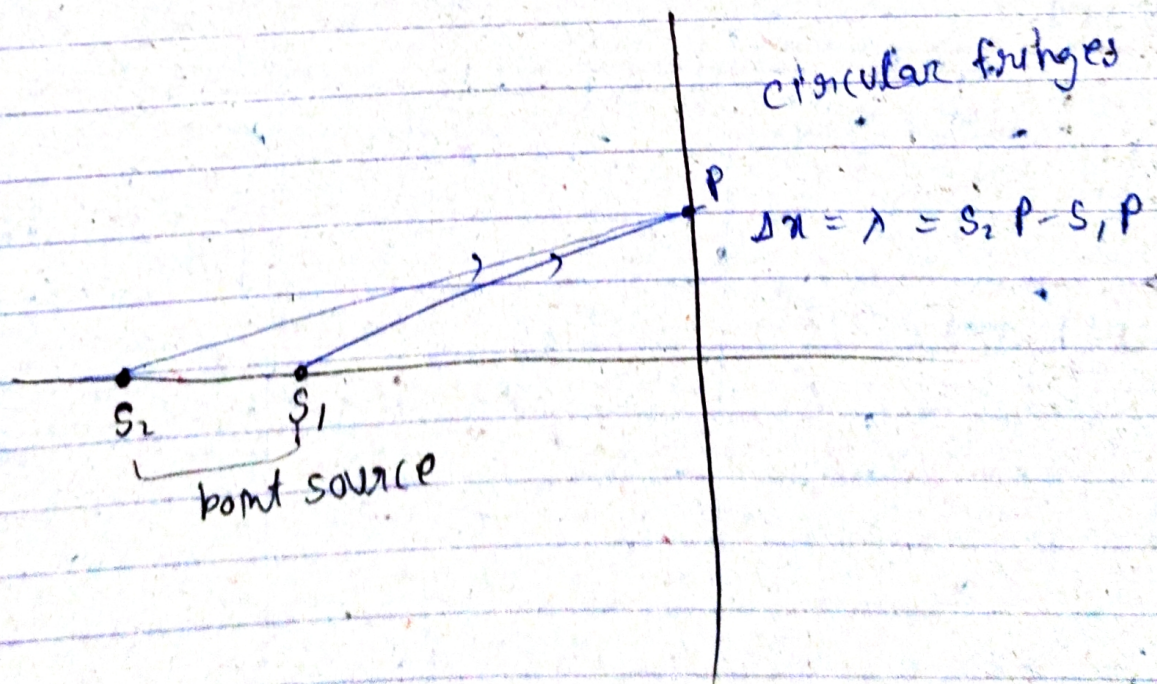 circular fringes
P
Δx = λ = S₂ P - S₁ P
S₂ S₁
point source